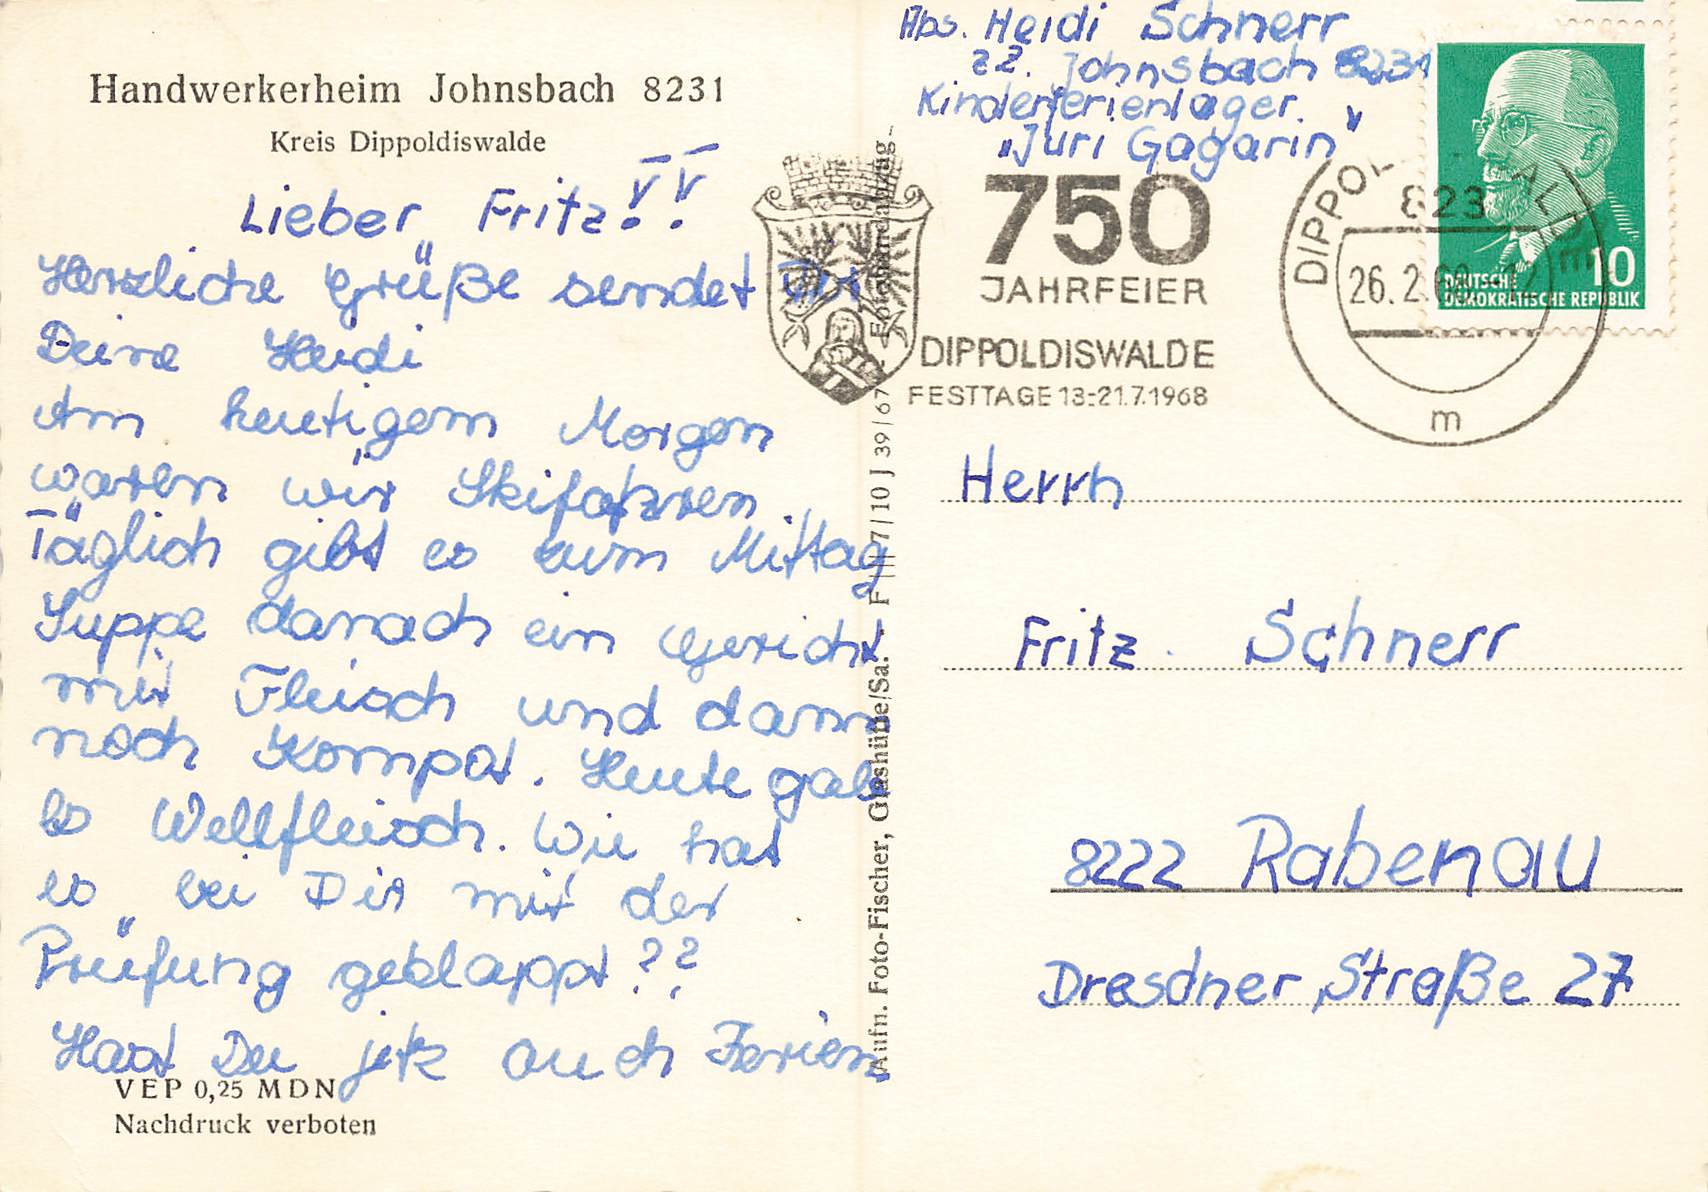 Handwerkerheim Johnsbach 8231
Kreis Dippoldiswalde
Lieber Fritz!!
Herzliche Grüße sendet Dir
Deine Heidi
Am heutigem Morgen
waren wir Skifahren.
Täglich gibt es zum Mittag
Suppe danach ein Gericht
mit Fleisch und dann
noch Kompot. Heute gab
es Wellfleisch. Wie hat
es bei Dir mit der
Prüfung geklappt??
Hast Du jetz auch Ferien
VEP 0,25 MDN
Nachdruck verboten
Aufn. Foto-Fischer, Glashütte/Sa. F III 7/10 J 39/67
Abs. Heidi Schnerr
zZ. Johnsbach 8231
Kinderferienlager.
„Juri Gagarin"
750
JAHRFEIER
DIPPOLDISWALDE
FESTTAGE 13.-21.7.1968
DIPPOLDISWALDE
823
26.2.
m
10
DEUTSCHE
DEMOKRATISCHE REPUBLIK
Herrn
Fritz Schnerr
8222 Rabenau
Dresdner Straße 27